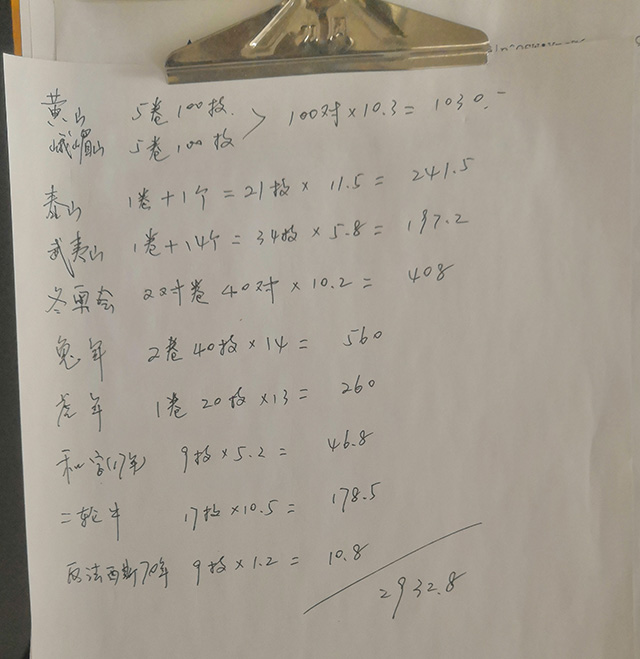 黄山 5卷100枚.
峨嵋山 5卷100枚 > 100对×10.3= 1030.-
泰山 1卷+1个=21枚× 11.5= 241.5
武夷山 1卷+14个=34枚×5.8= 197.2
冬奥会 2对卷 40对×10.2= 408
兔年 2卷40枚×14= 560
虎年 1卷20枚×13= 260
和字(17年) 9枚×5.2= 46.8
二轮牛 17枚×10.5= 178.5
反法西斯70年 9枚×1.2= 10.8
2932.8